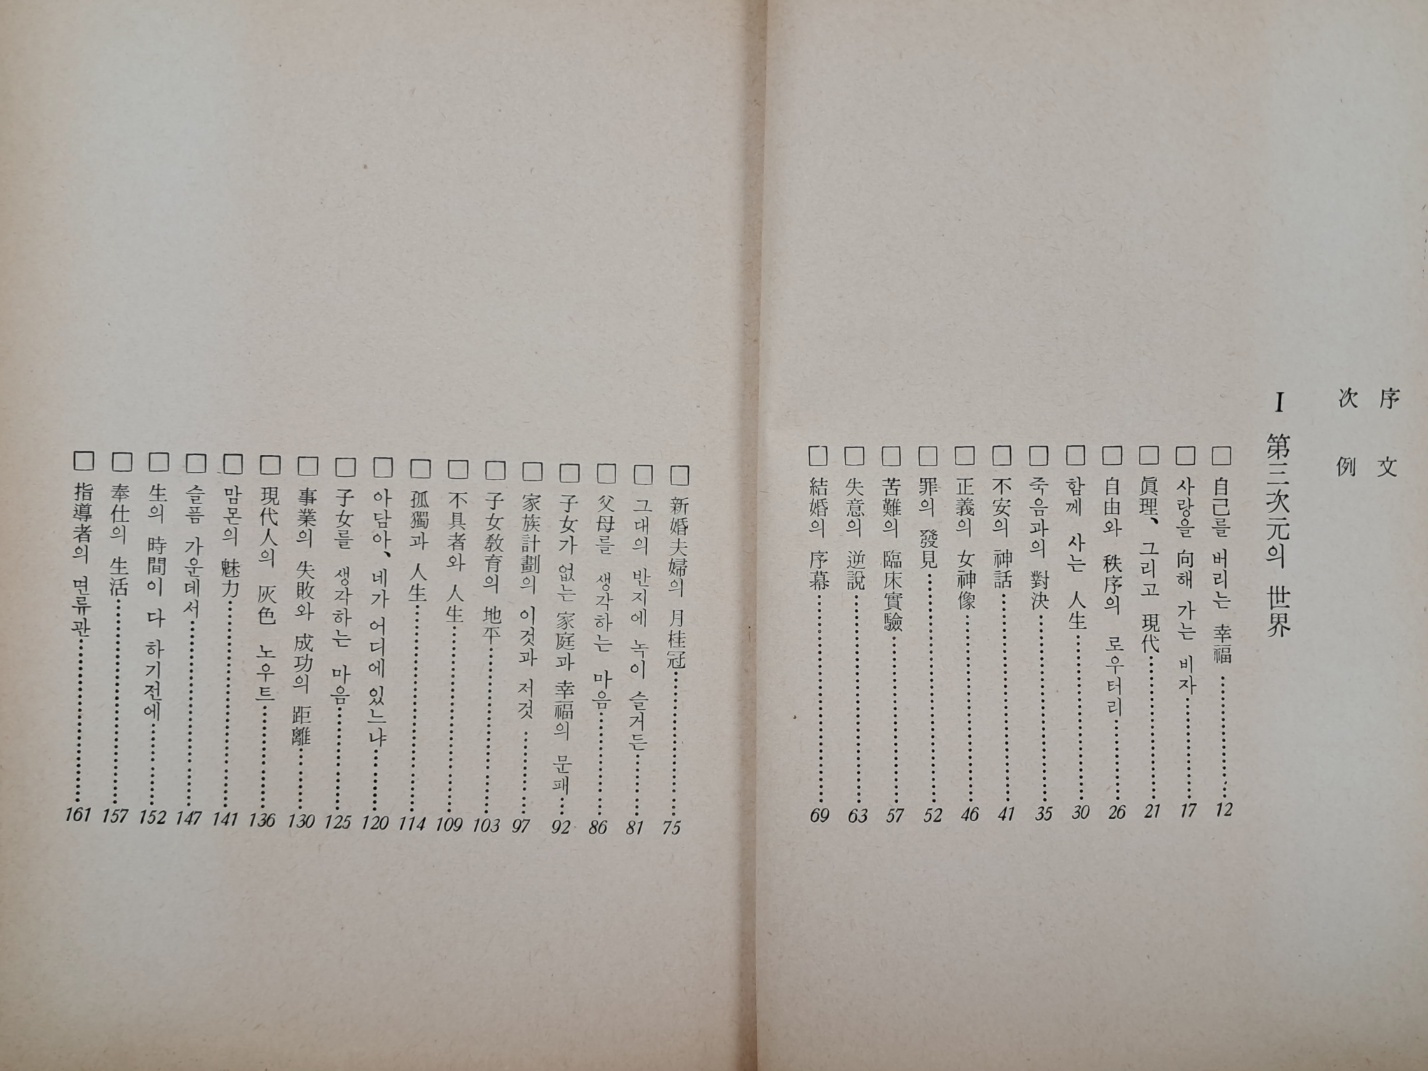 序文
次例
I 第三次元의 世界
□ 自己를 버리는 幸福 12
□ 사랑을 向해 가는 비자 17
□ 眞理、그리고 現代 21
□ 自由와 秩序의 로우터리 26
□ 함께 사는 人生 30
□ 죽음과의 對決 35
□ 不安의 神話 41
□ 正義의 女神像 46
□ 罪의 發見 52
□ 苦難의 臨床實驗 57
□ 失意의 逆說 63
□ 結婚의 序幕 69
□ 新婚夫婦의 月桂冠 75
□ 그대의 반지에 녹이 슬거든 81
□ 父母를 생각하는 마음 86
□ 子女가 없는 家庭과 幸福의 문패 92
□ 家族計劃의 이것과 저것 97
□ 子女敎育의 地平 103
□ 不具者와 人生 109
□ 孤獨과 人生 114
□ 아담아、네가 어디에 있느냐 120
□ 子女를 생각하는 마음 125
□ 事業의 失敗와 成功의 距離 130
□ 現代人의 灰色 노우트 136
□ 맘몬의 魅力 141
□ 슬픔 가운데서 147
□ 生의 時間이 다 하기전에 152
□ 奉仕의 生活 157
□ 指導者의 면류관 161